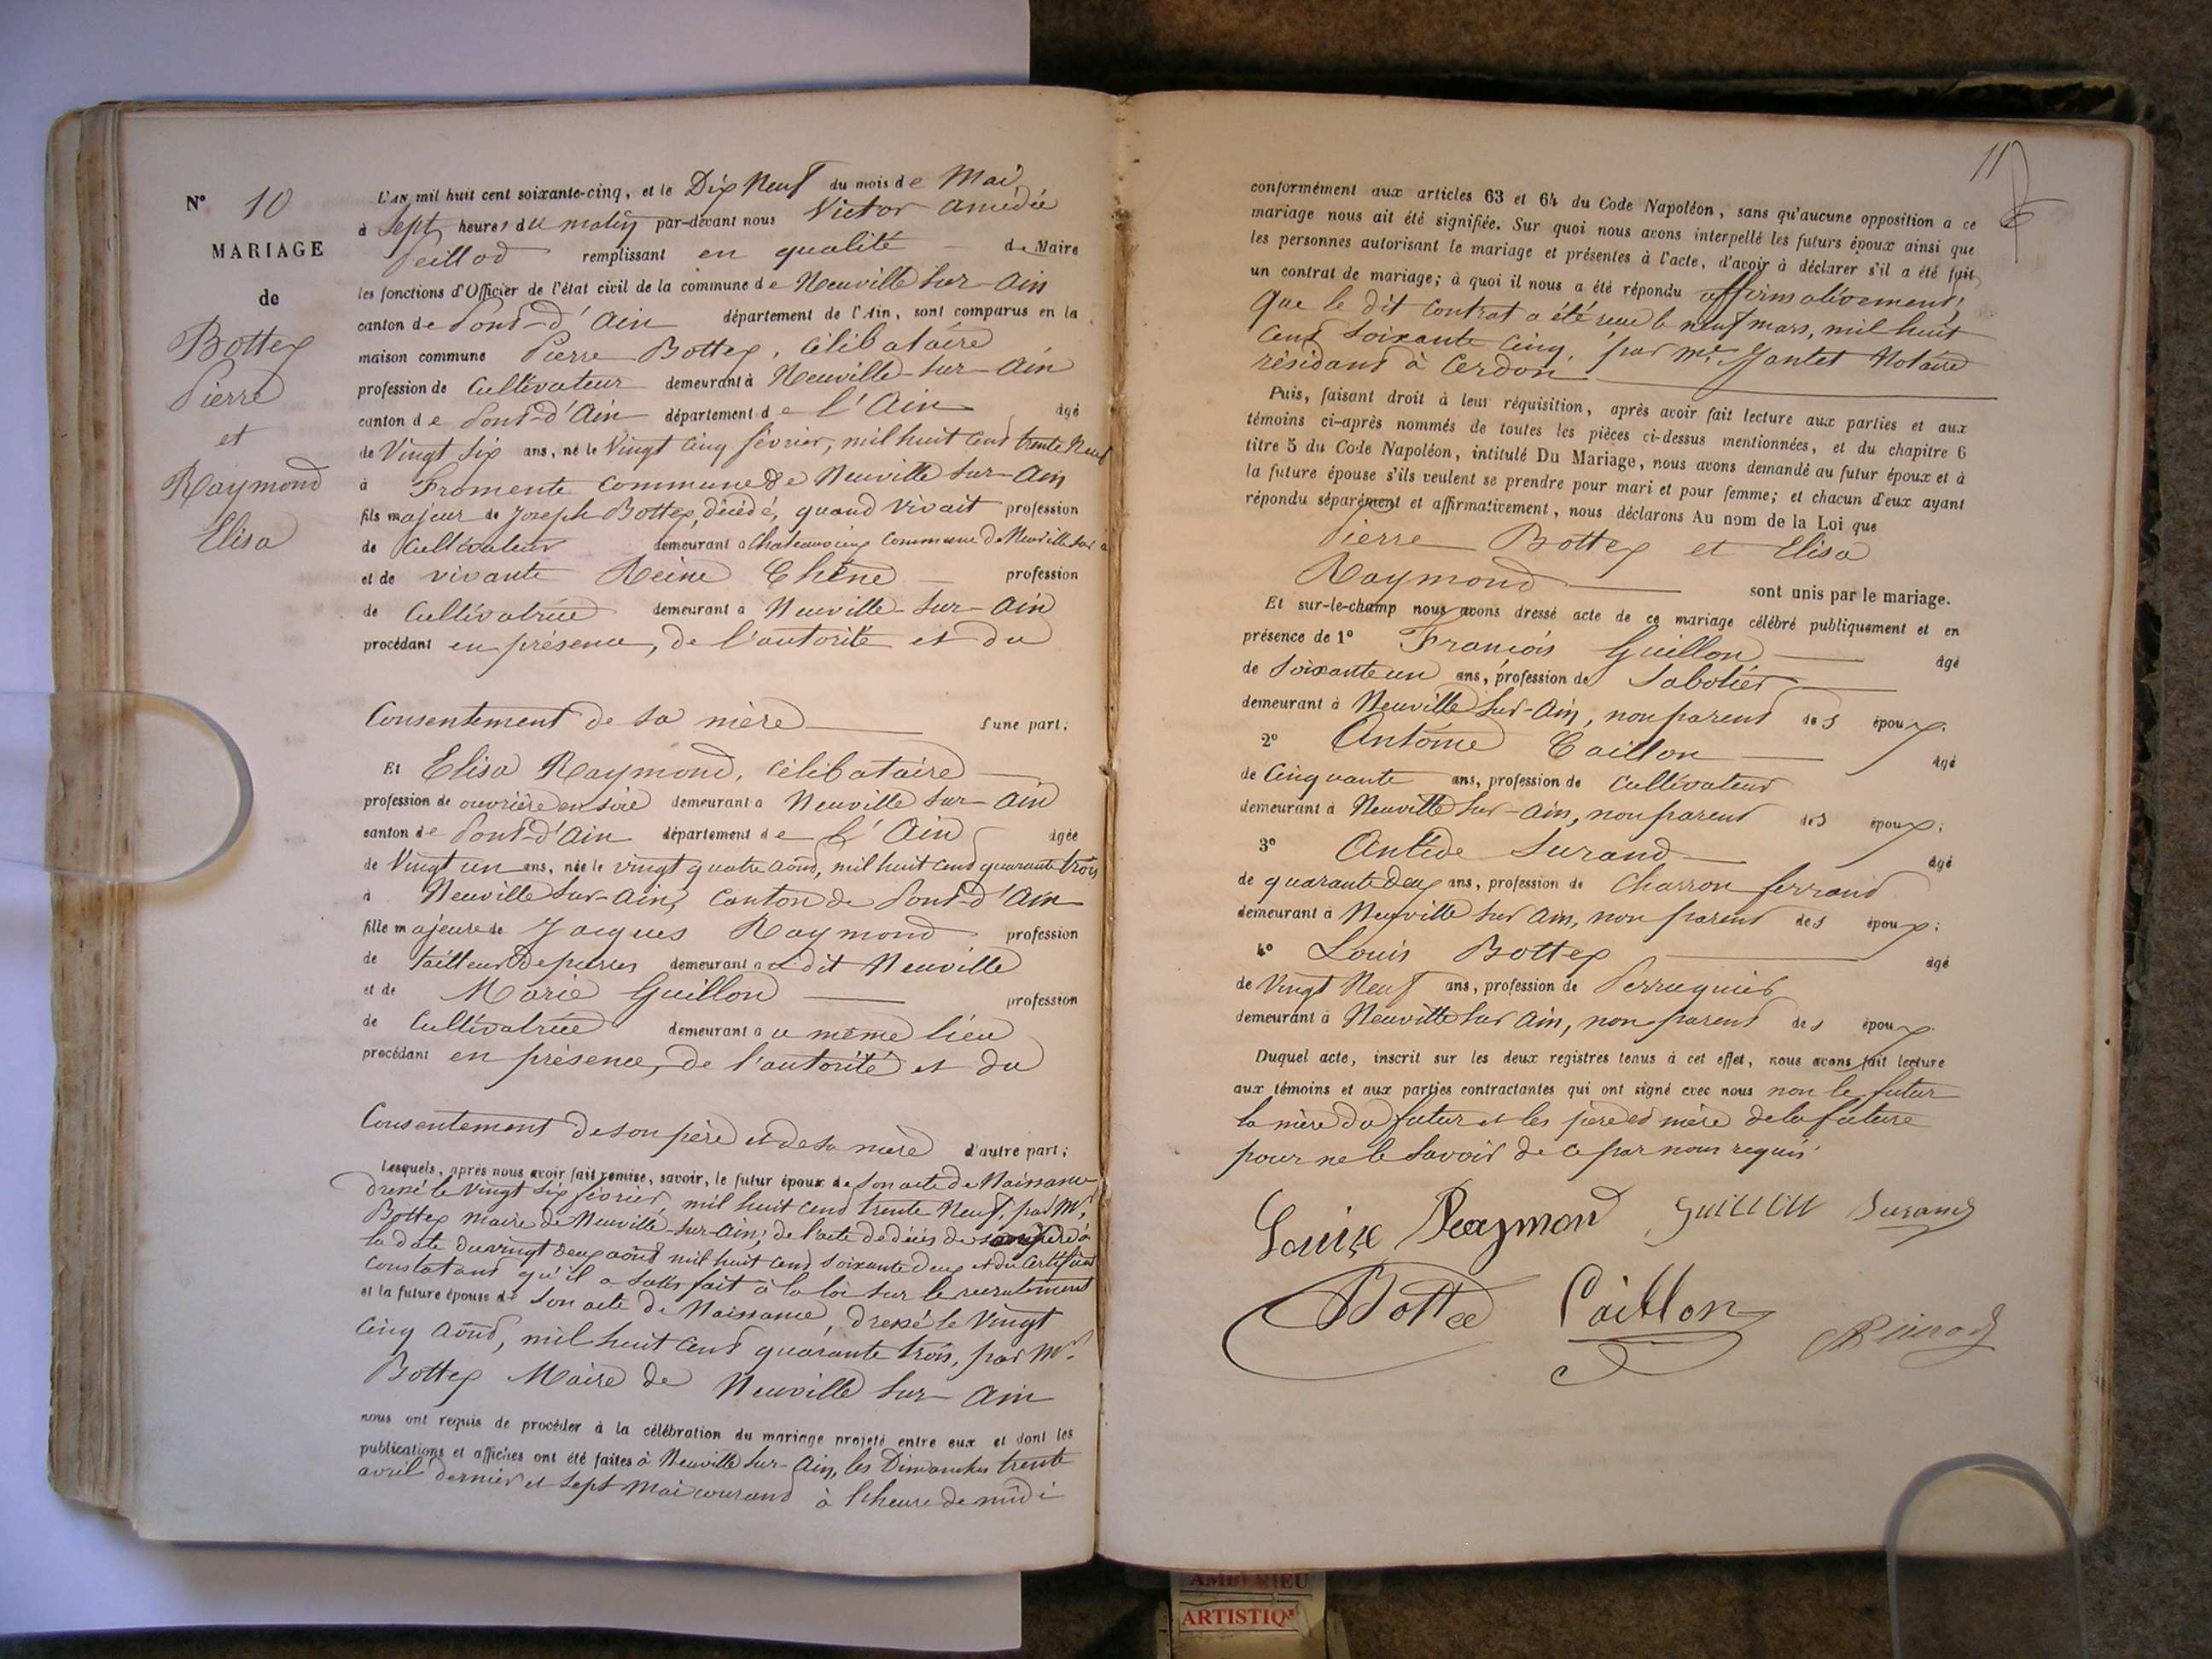 N° 10
MARIAGE
de
Bottex
Pierre
et
Raymond
Elisa
L'AN mil huit cent soixante-cinq, et le Dix Neuf du mois de Mai
à Sept heures du matin par-devant nous Victor Amédée
Peillod remplissant en qualité de Maire
les fonctions d'Officier de l'état civil de la commune de Neuville sur Ain
canton de Pont-d'Ain département de l'Ain, sont comparus en la
maison commune Pierre Bottex, célibataire
profession de Cultivateur demeurant à Neuville-sur-Ain
canton de Pont-d'Ain département de l'Ain âgé
de Vingt Six ans, né le Vingt Cinq février, mil huit cent trente Neuf
à Fromente commune de Neuville sur Ain
fils majeur de Joseph Bottex, décédé, quand vivait profession
de Cultivateur demeurant à Chateauvieux commune de Neuville sur a
et de vivante Reine Chêne profession
de Cultivatrice demeurant à Neuville-sur-Ain
procédant en présence, de l'autorité et du
Consentement de sa mère d'une part;
Et Elisa Raymond, célibataire
profession de ouvrière en soie demeurant à Neuville sur Ain
canton de Pont-d'Ain département de l'Ain âgée
de Vingt un ans, née le vingt quatre août, mil huit cent quarante trois
à Neuville sur-Ain, Canton de Pont-d'Ain
fille majeure de Jacques Raymond profession
de tailleur de pierres demeurant au dit Neuville
et de Marie Guillon profession
de Cultivatrice demeurant au même lieu
procédant en présence, de l'autorité et du
Consentement de son père et de sa mère d'autre part;
Lesquels, après nous avoir fait remise, savoir, le futur époux de Son acte de Naissance
dressé le Vingt Six février, mil huit cent trente Neuf, par Mr
Bottex maire de Neuville-sur-Ain; de l'acte de décès de son père à
la date du vingt deux août mil huit cent soixante deux et du Certificat
constatant qu'il a satisfait à la loi sur le recrutement
et la future épouse de Son acte de Naissance, dressé le Vingt
Cinq Août, mil huit cent quarante trois, par Mr
Bottex Maire de Neuville sur Ain
nous ont requis de procéder à la célébration du mariage projeté entre eux et dont les
publications et affiches ont été faites à Neuville sur-Ain, les Dimanches trente
avril dernier et sept Mai courant à l'heure de midi
11
conformément aux articles 63 et 64 du Code Napoléon, sans qu'aucune opposition à ce
mariage nous ait été signifiée. Sur quoi nous avons interpellé les futurs époux ainsi que
les personnes autorisant le mariage et présentes à l'acte, d'avoir à déclarer s'il a été fait
un contrat de mariage; à quoi il nous a été répondu affirmativement,
que le dit contrat a été reçu le neuf mars, mil huit
cent soixante cinq, par Me Jantet Notaire
résidant à Cerdon
Puis, faisant droit à leur réquisition, après avoir fait lecture aux parties et aux
témoins ci-après nommés de toutes les pièces ci-dessus mentionnées, et du chapitre 6
titre 5 du Code Napoléon, intitulé Du Mariage, nous avons demandé au futur époux et à
la future épouse s'ils veulent se prendre pour mari et pour femme; et chacun d'eux ayant
répondu séparément et affirmativement, nous déclarons Au nom de la Loi que
Pierre Bottex et Elisa
Raymond sont unis par le mariage.
Et sur-le-champ nous avons dressé acte de ce mariage célébré publiquement et en
présence de 1° François Guillon âgé
de Soixante un ans, profession de Sabotier
demeurant à Neuville sur-Ain, non parent des époux.
2° Antoine Caillon âgé
de Cinquante ans, profession de Cultivateur
demeurant à Neuville sur-Ain, non parent des époux;
3° Antide Surand âgé
de quarante deux ans, profession de Charron ferrand
demeurant à Neuville sur Ain, non parent des époux;
4° Louis Bottex âgé
de Vingt Neuf ans, profession de Perruquier
demeurant à Neuville sur Ain, non parent des époux.
Duquel acte, inscrit sur les deux registres tenus à cet effet, nous avons fait lecture
aux témoins et aux parties contractantes qui ont signé avec nous non le futur
la mère du futur et les père et mère de la future
pour ne le savoir de ce par nous requis
Louise Raymond Guillon Surand
Bottex Caillon
AMBERIEU
ARTISTIQ